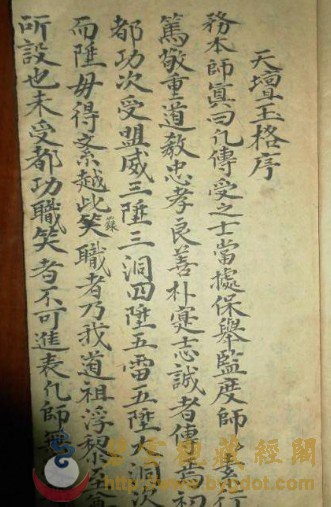 天壇玉格序
務本師眞曰凡傳受之士當擬保舉監度師必素行
篤敬重道教忠孝良善朴寔志誠者傳焉初
都功次受盟威三陞三洞四陞五雷五陞大洞次
而陞毋得紊越此笑籙職者乃我道祖浮黎
所設也未受都功職笑者不可進表凡師
藏經閣